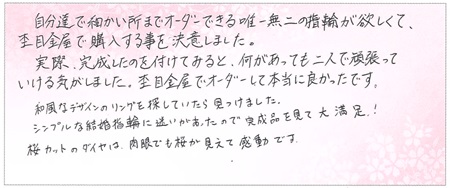 自分達で細かい所までオーダーできる唯一無二の指輪が欲しくて、
杢目金屋で購入する事を決意しました。
実際、完成したのを付けてみると、何があっても二人で頑張って
いける気がしました。杢目金屋でオーダーして本当に良かったです。
和風なデザインのリングを探していたら見つけました。
シンプルな結婚指輪に迷いがあったので完成品を見て大満足!
桜カットのダイヤは、肉眼でも桜が見えて感動です。